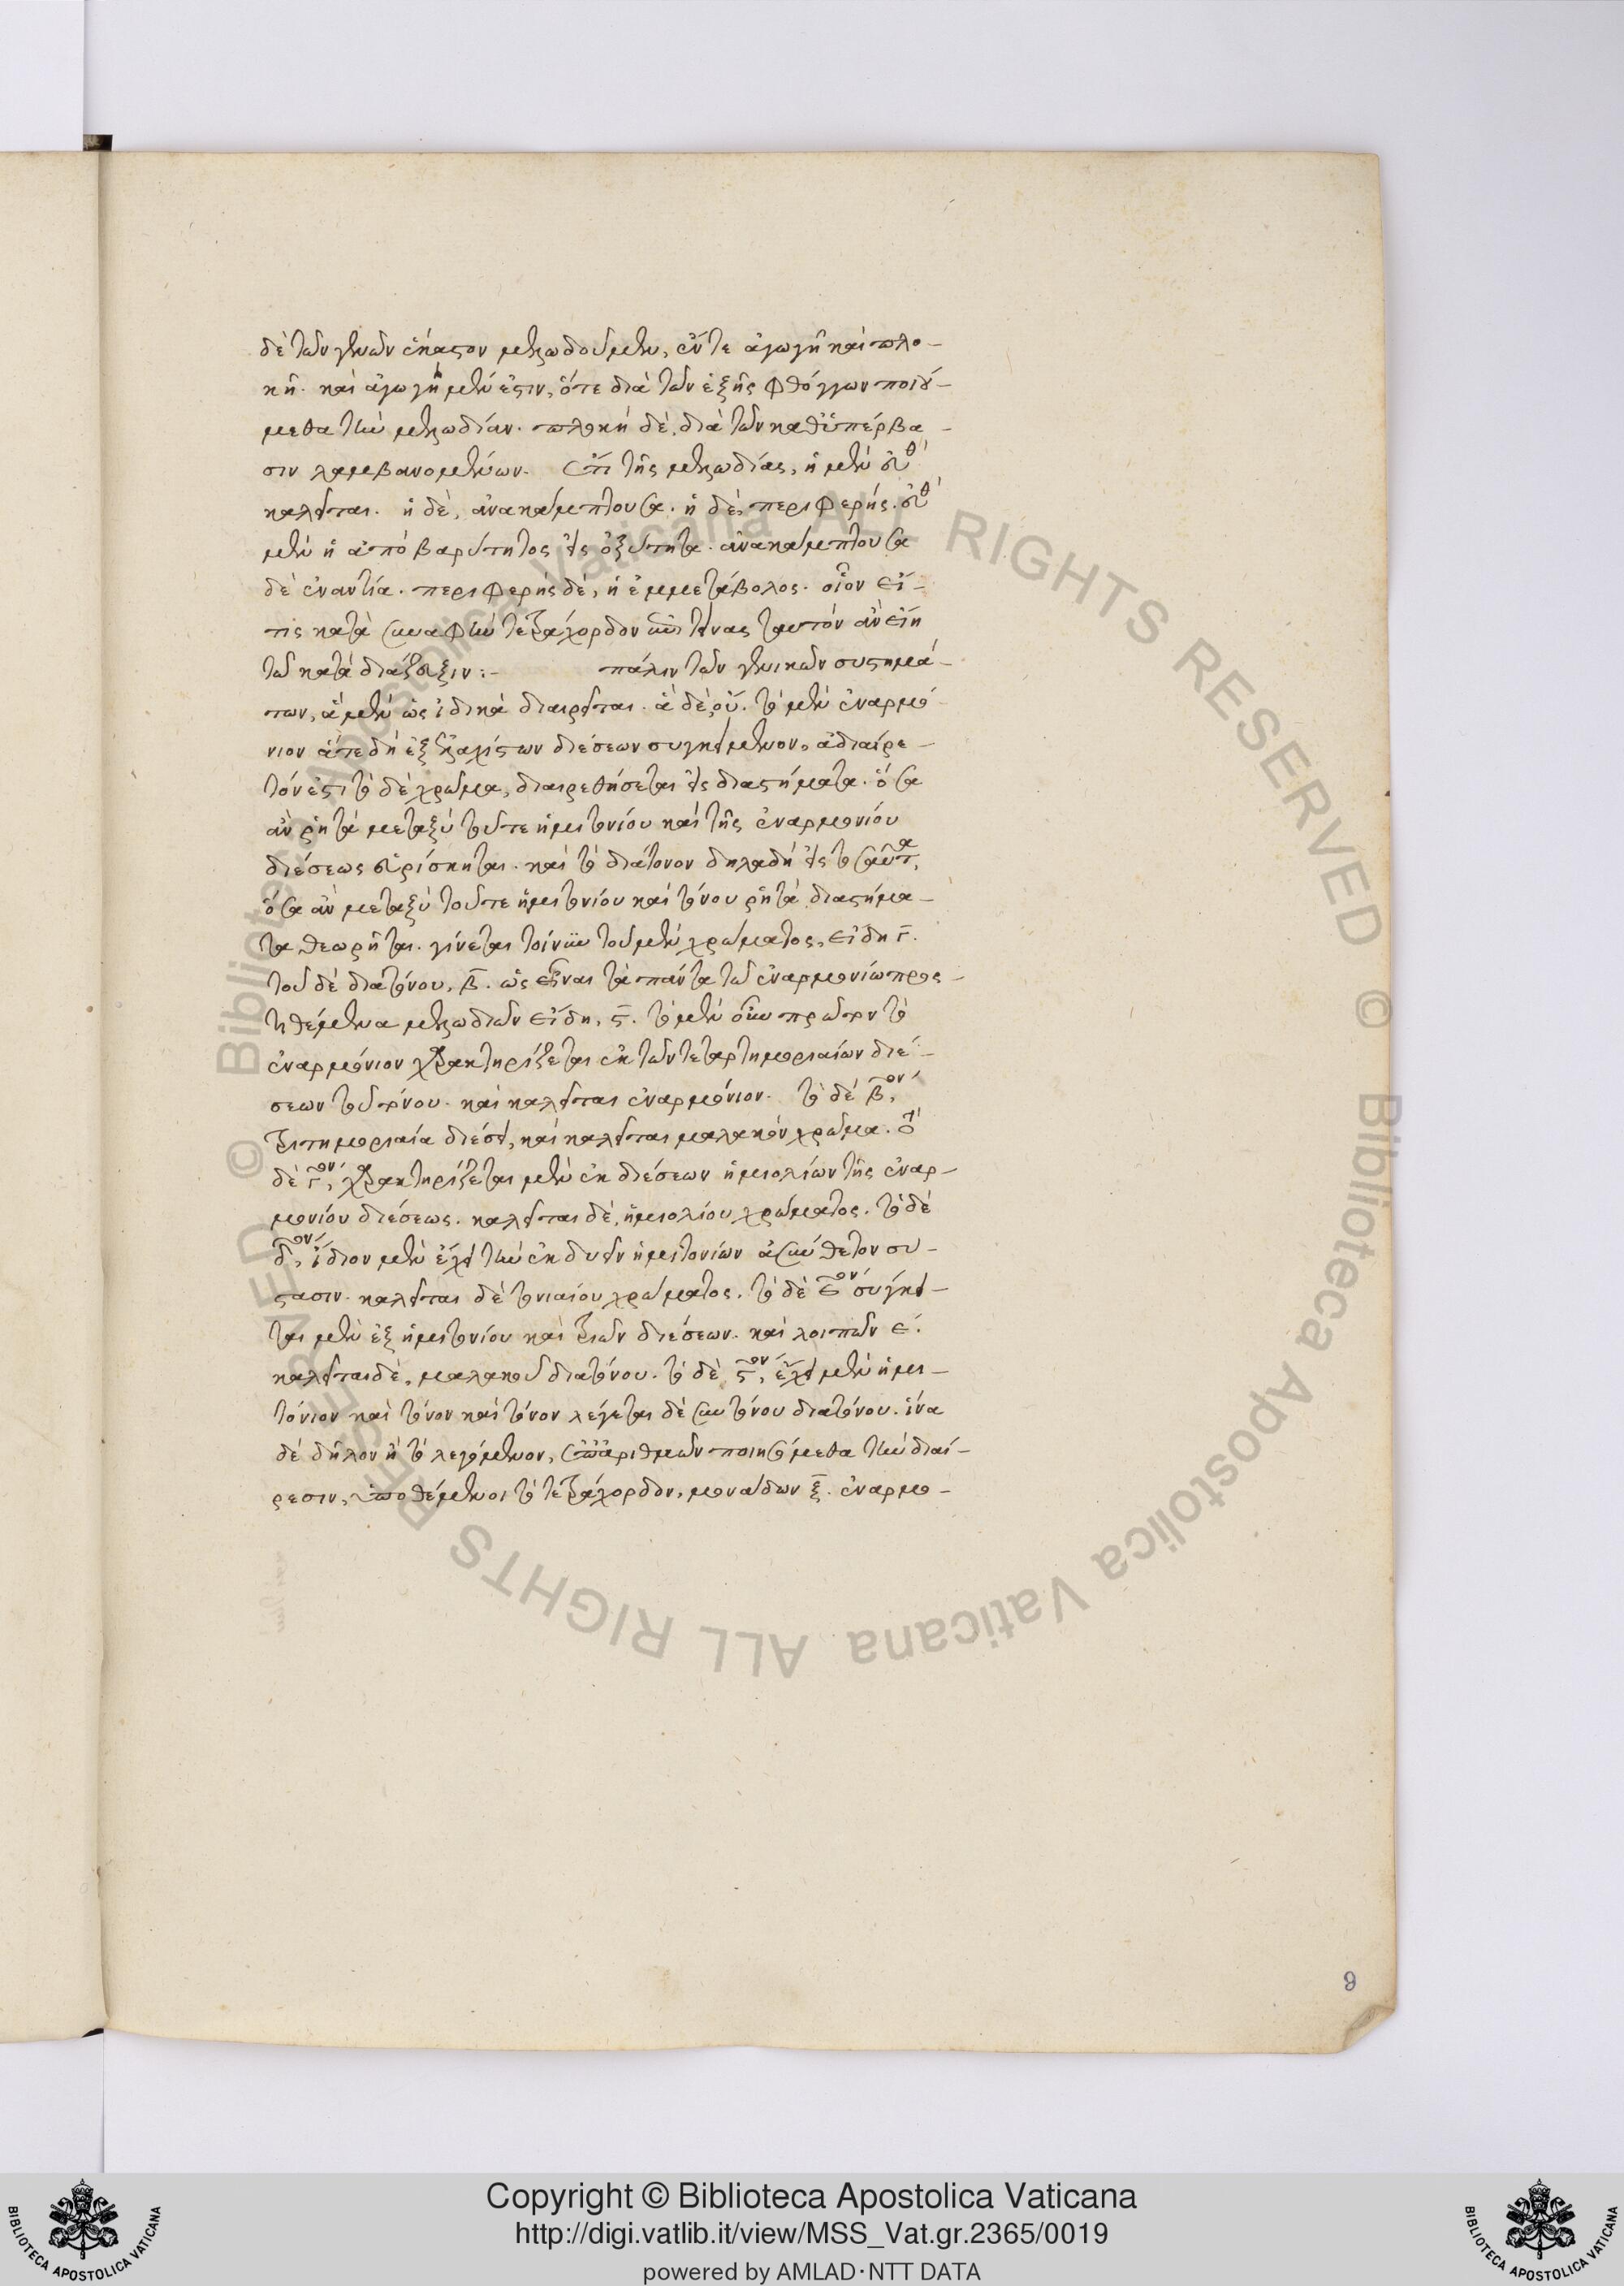 δὲ τῶν γενῶν ἕκαστον μελῳδοῦμεν, ἔν τε ἀγωγῇ καὶ πλο-
κῇ. καὶ ἀγωγὴ μέν ἐστιν, ὅτε διὰ τῶν ἑξῆς φθόγγων ποιού-
μεθα τὴν μελῳδίαν. πλοκὴ δὲ, διὰ τῶν καθ' ὑπέρβα-
σιν λαμβανομένων. ἔτι τῆς μελῳδίας, ἡ μὲν εὐθ'
καλεῖται. ἡ δὲ, ἀνακάμπτουσα. ἡ δὲ, περιφερής. εὐθ'
μὲν ἡ ἀπὸ βαρύτητος εἰς ὀξύτητα. ἀνακάμπτουσα
δὲ ἐναντία. περιφερὴς δὲ, ἡ ἐμμετάβολος. οἷον εἴ-
τις κατὰ συναφὴν τετράχορδον ἐπιτείνας ταυτὸν ἀνείη
τῶ κατὰ διάζευξιν:- πάλιν τῶν γενικῶν συστημά-
των, ἃ μὲν ὡς ἰδικὰ διαιρεῖται. ἃ δὲ, οὔ. τὸ μὲν ἐναρμό-
νιον ἅτε δὴ ἐξ ἐλαχίστων διέσεων συγκείμενον, ἀδιαίρε-
τόν ἐστι τὸ δὲ χρῶμα, διαιρεθήσεται εἰς διαστήματα. ὅσα
ἂν ῥητὰ μεταξὺ τοῦ τε ἡμιτονίου καὶ τῆς ἐναρμονίου
διέσεως εὑρίσκηται. καὶ τὸ διάτονον δηλαδὴ εἰς τοσαῦτα,
ὅσα ἂν μεταξὺ τοῦ τε ἡμιτονίου καὶ τόνου ῥητὰ διαστήμα-
τα θεωρῆται. γίνεται τοίνυν τοῦ μὲν χρώματος, εἴδη γ̅.
τοῦ δὲ διατόνου, β̅. ὡς εἶναι τὰ πάντα τῶ ἐναρμονίω προς-
τιθέμενα μελῳδιῶν εἴδη, ϛ̅. τὸ μὲν οὖν πρῶτον τὸ
ἐναρμόνιον χαρακτηρίζεται ἐκ τῶν τεταρτημοριαίων διέ-
σεων τοῦ τόνου. καὶ καλεῖται ἐναρμόνιον. τὸ δὲ β̅ον,
τριτημοριαία διέσει, καὶ καλεῖται μαλακὸν χρῶμα. τὸ
δὲ γ̅ον, χαρακτηρίζεται μὲν ἐκ διέσεων ἡμιολίων τῆς ἐναρ-
μονίου διέσεως. καλεῖται δὲ, ἡμιολίου χρώματος. τὸ δὲ
δ̅ον, ἴδιον μὲν ἔχει τὴν ἐκ δυεῖν ἡμιτονίων ἀσύνθετον σύ-
στασιν. καλεῖται δὲ τονιαίου χρώματος. τὸ δὲ ε̅ον σύγκει-
ται μὲν ἐξ ἡμιτονίου καὶ τριῶν διέσεων. καὶ λοιπῶν ε.
καλεῖται δὲ, μαλακοῦ διατόνου. τὸ δὲ ϛ̅ον, ἔχει μὲν ἡμι-
τόνιον καὶ τόνον καὶ τόνον λέγεται δὲ συντόνου διατόνου. ἵνα
δὲ δῆλον ᾖ τὸ λεγόμενον, ἐπ' ἀριθμῶν ποιησόμεθα τὴν διαί-
ρεσιν, ὑποθέμενοι τὸ τετράχορδον, μονάδων ξ̅. ἐναρμο-
9
Copyright © Biblioteca Apostolica Vaticana
http://digi.vatlib.it/view/MSS_Vat.gr.2365/0019
powered by AMLAD·NTT DATA